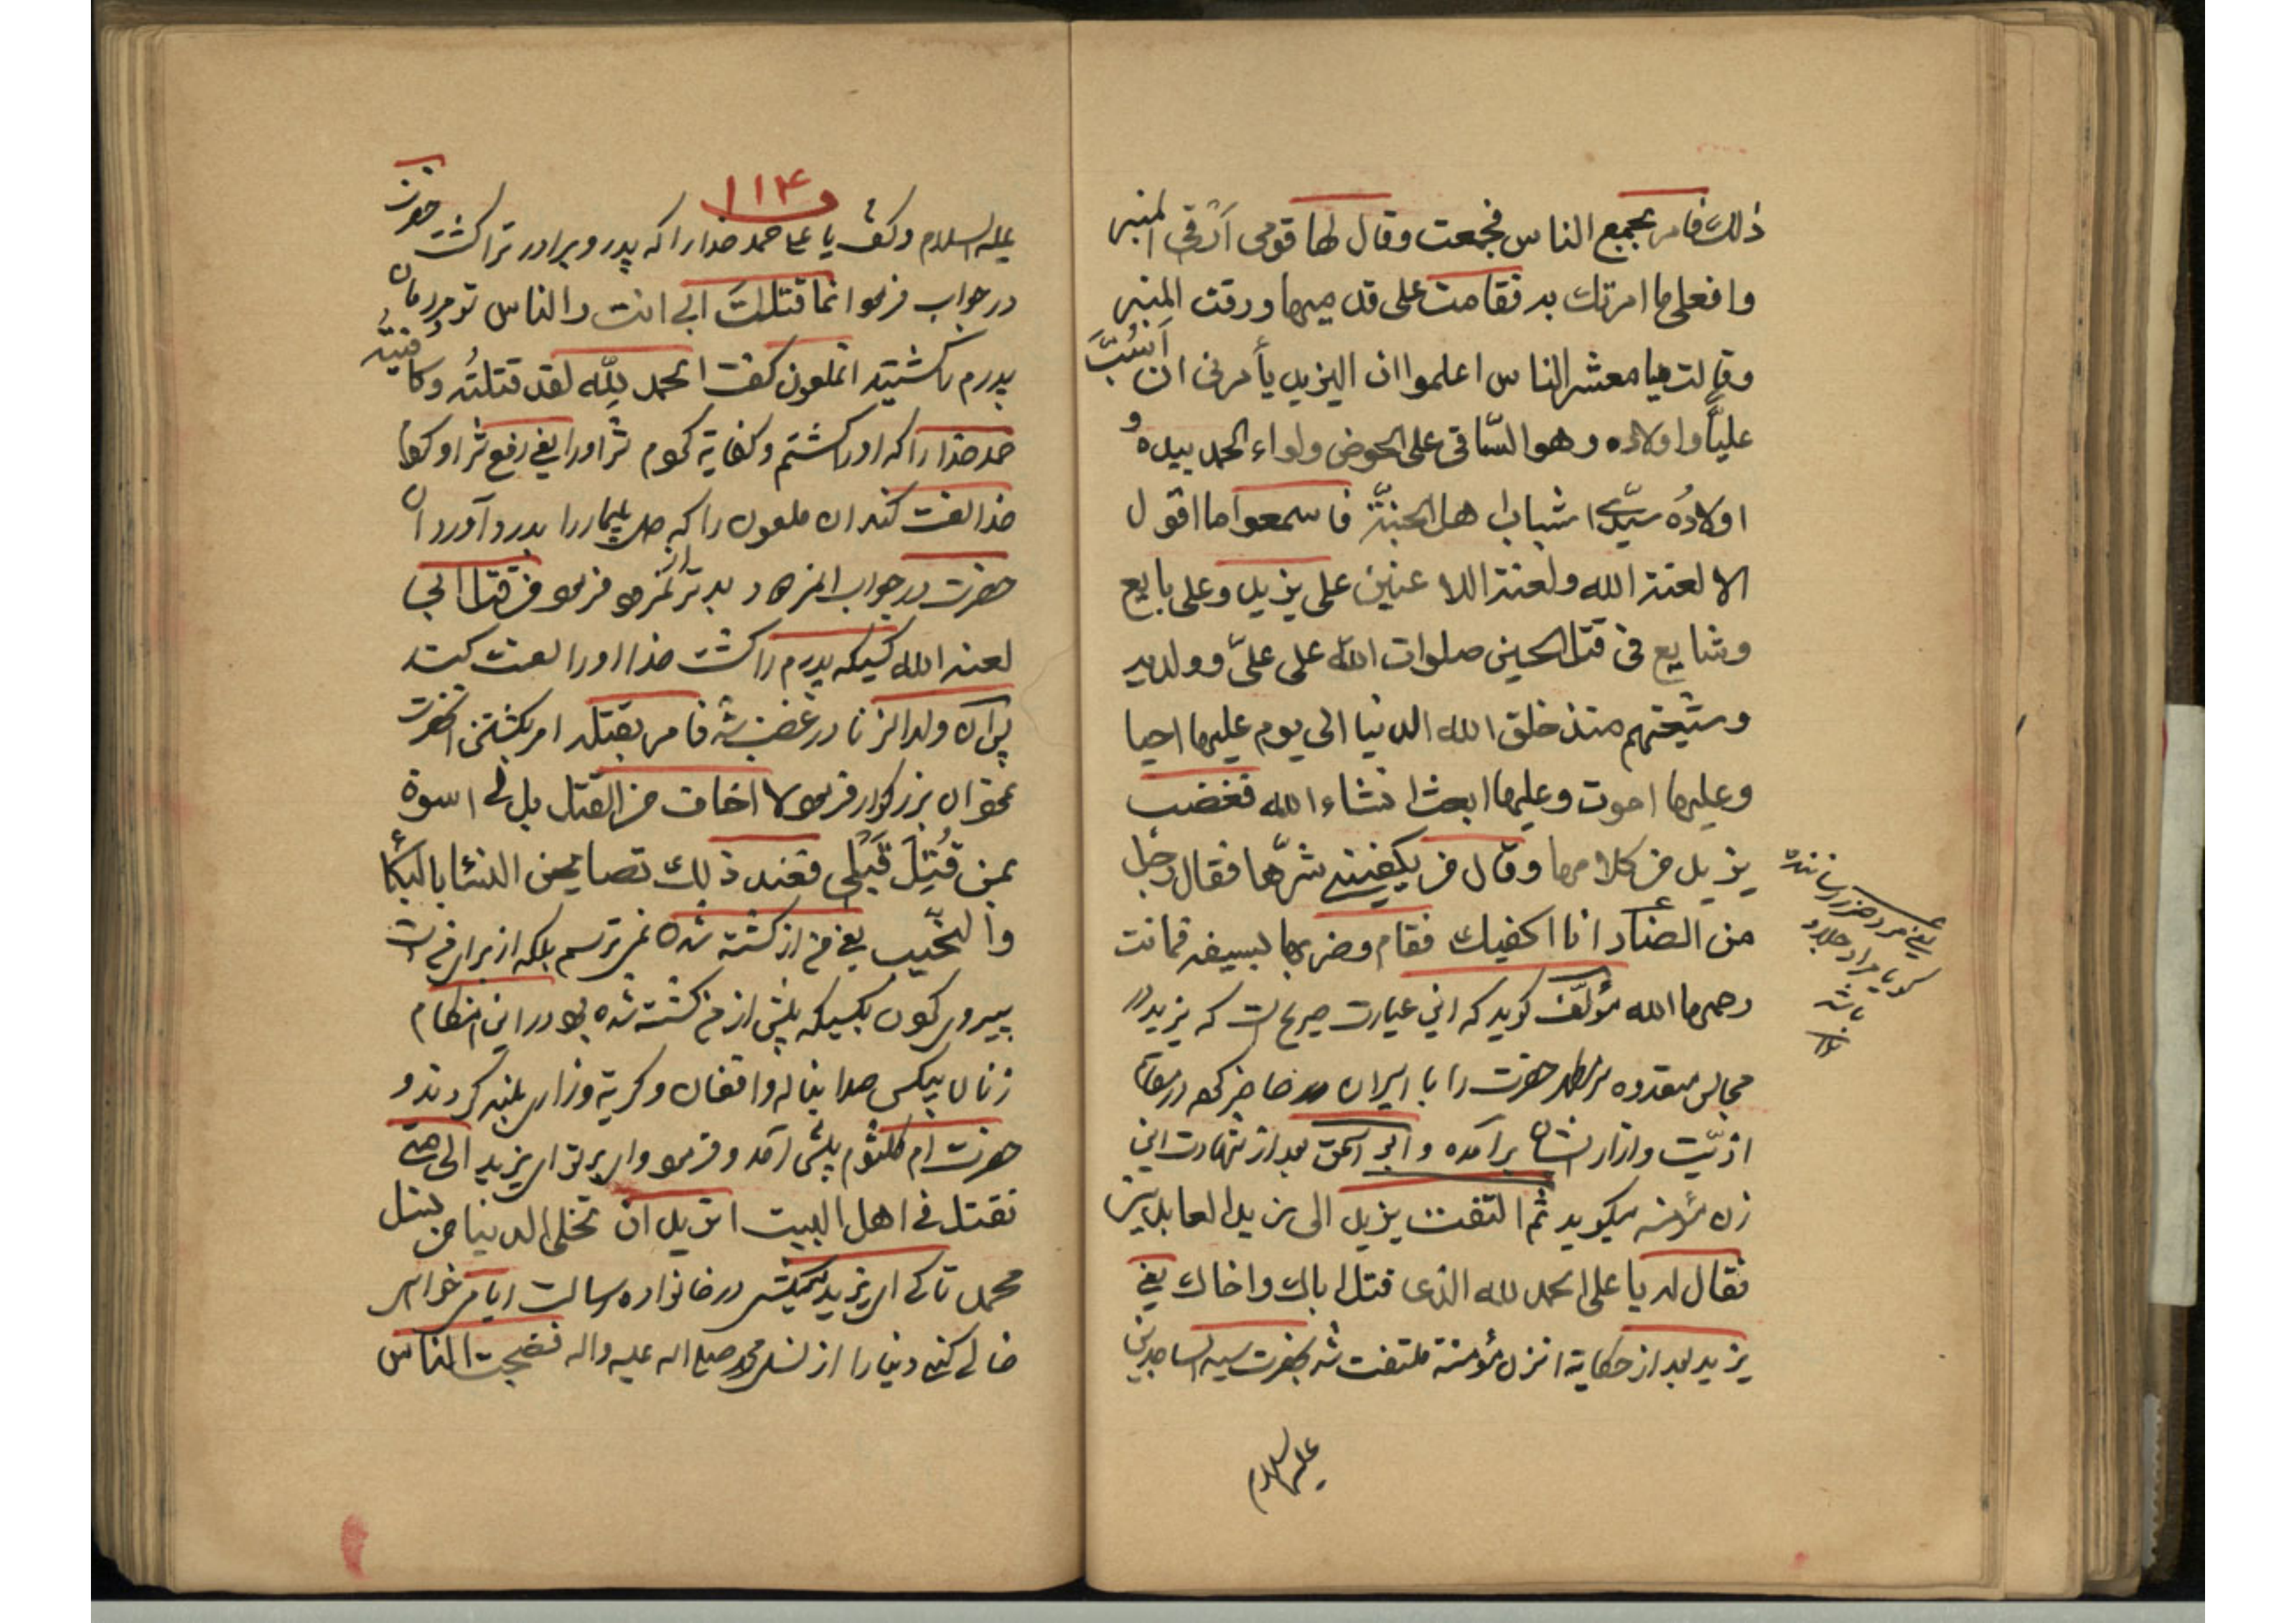 ذلك فامر بجمع الناس فجمعت وقال لها قومی ارقی المنبر
وافعلی ما امرتك به فقامت علی قدمیها ورقت المنبر
وقالت یا معشر الناس اعلموا ان الیزید یأمرنی ان أسُبَّ
علیًّا واولاده وهو السّاقی علی الحوض ولواء الحمد بیده و
اولادُه سیّدا شباب اهل الجنّة فاسمعوا ما اقول
الا لعنة الله ولعنة اللاعنین علی یزید وعلی بایع
وشایع فی قتل الحسین صلوات الله علی علیّ وولدیه
وشیعتهم منذ خلق الله الدنیا الی یوم علیها احیا
وعلیها اموت وعلیها ابعث انشاء الله فغضب
یزید من کلامها وقال من یکفینی شرّها فقال رجل
من الضّاد انا اکفیك فقام وضربها بسیفه فماتت
رحمها الله مؤلّف کوید که این عبارت صریح است که یزید در
مجالس متعدده سر مطهر حضرت را با اسیران حاضر کرده در مقام
اذیّت وازار ایشان برآمده و بعد از شهادت این
زن مؤمنه میکوید ثم التفت یزید الی زین العابدین
فقال له یا علی الحمد لله الذی قتل اباك واخاك یعنی
یزید بعد از حکایة انزن مؤمنة ملتفت شد بحضرت سید الساجدین
علیه السلام
یعنی مرد ضرر رساننده
کویا مراد جلاد
باشد
۱۱۴
علیه السلام وکفت یا علی حمد خدا را که پدر وبرادر ترا کشت حضرت
در جواب فرمود انما قتلت ابی انت والناس تو مردمان
پدرم کشتید انملعون کفت الحمد لِلّه لقد قتلتُه وکافیته
حمد خدا را که او را کشتم وکفایة کردم شر او را یعنی رفع شر او کردم
خدا لعنت کند ان ملعون را که دل بیمار را بدرد آورد ان
حضرت در جواب المزهاد بدتر از نمرود فرمود من قتل ابی
لعنه الله کسیکه پدرم را کشت خدا او را لعنت کند
پس ان ولد الزنا در غضب شد فامر بقتله امر بکشتن انحضرت
نمود ان بزرکوار فرمود لا اخاف من القتل بل لی اسوة
بمن قُتِلَ قَبْلی فعند ذلك تصایحن النساء بالبکاء
والنحیب یعنی من از کشته شدن نمی ترسم بلکه از برای من است
پیروی کردن بکسیکه پیش از من کشته شده بود در این هنکام
زنان بیکس صدا بناله وافغان وکریة وزاری بلند کردند و
حضرت ام کلثوم پیش آمد و فرمود وای بر تو ای یزید الی متی
تقتل فی اهل البیت اترید ان تخلی الدنیا من نسل
محمد تا کی ای یزید میکشی در خانواده رسالت ایا می خواهی
خالی کنی دنیا را از نسل محمد صلی اله علیه واله فضجت الناس